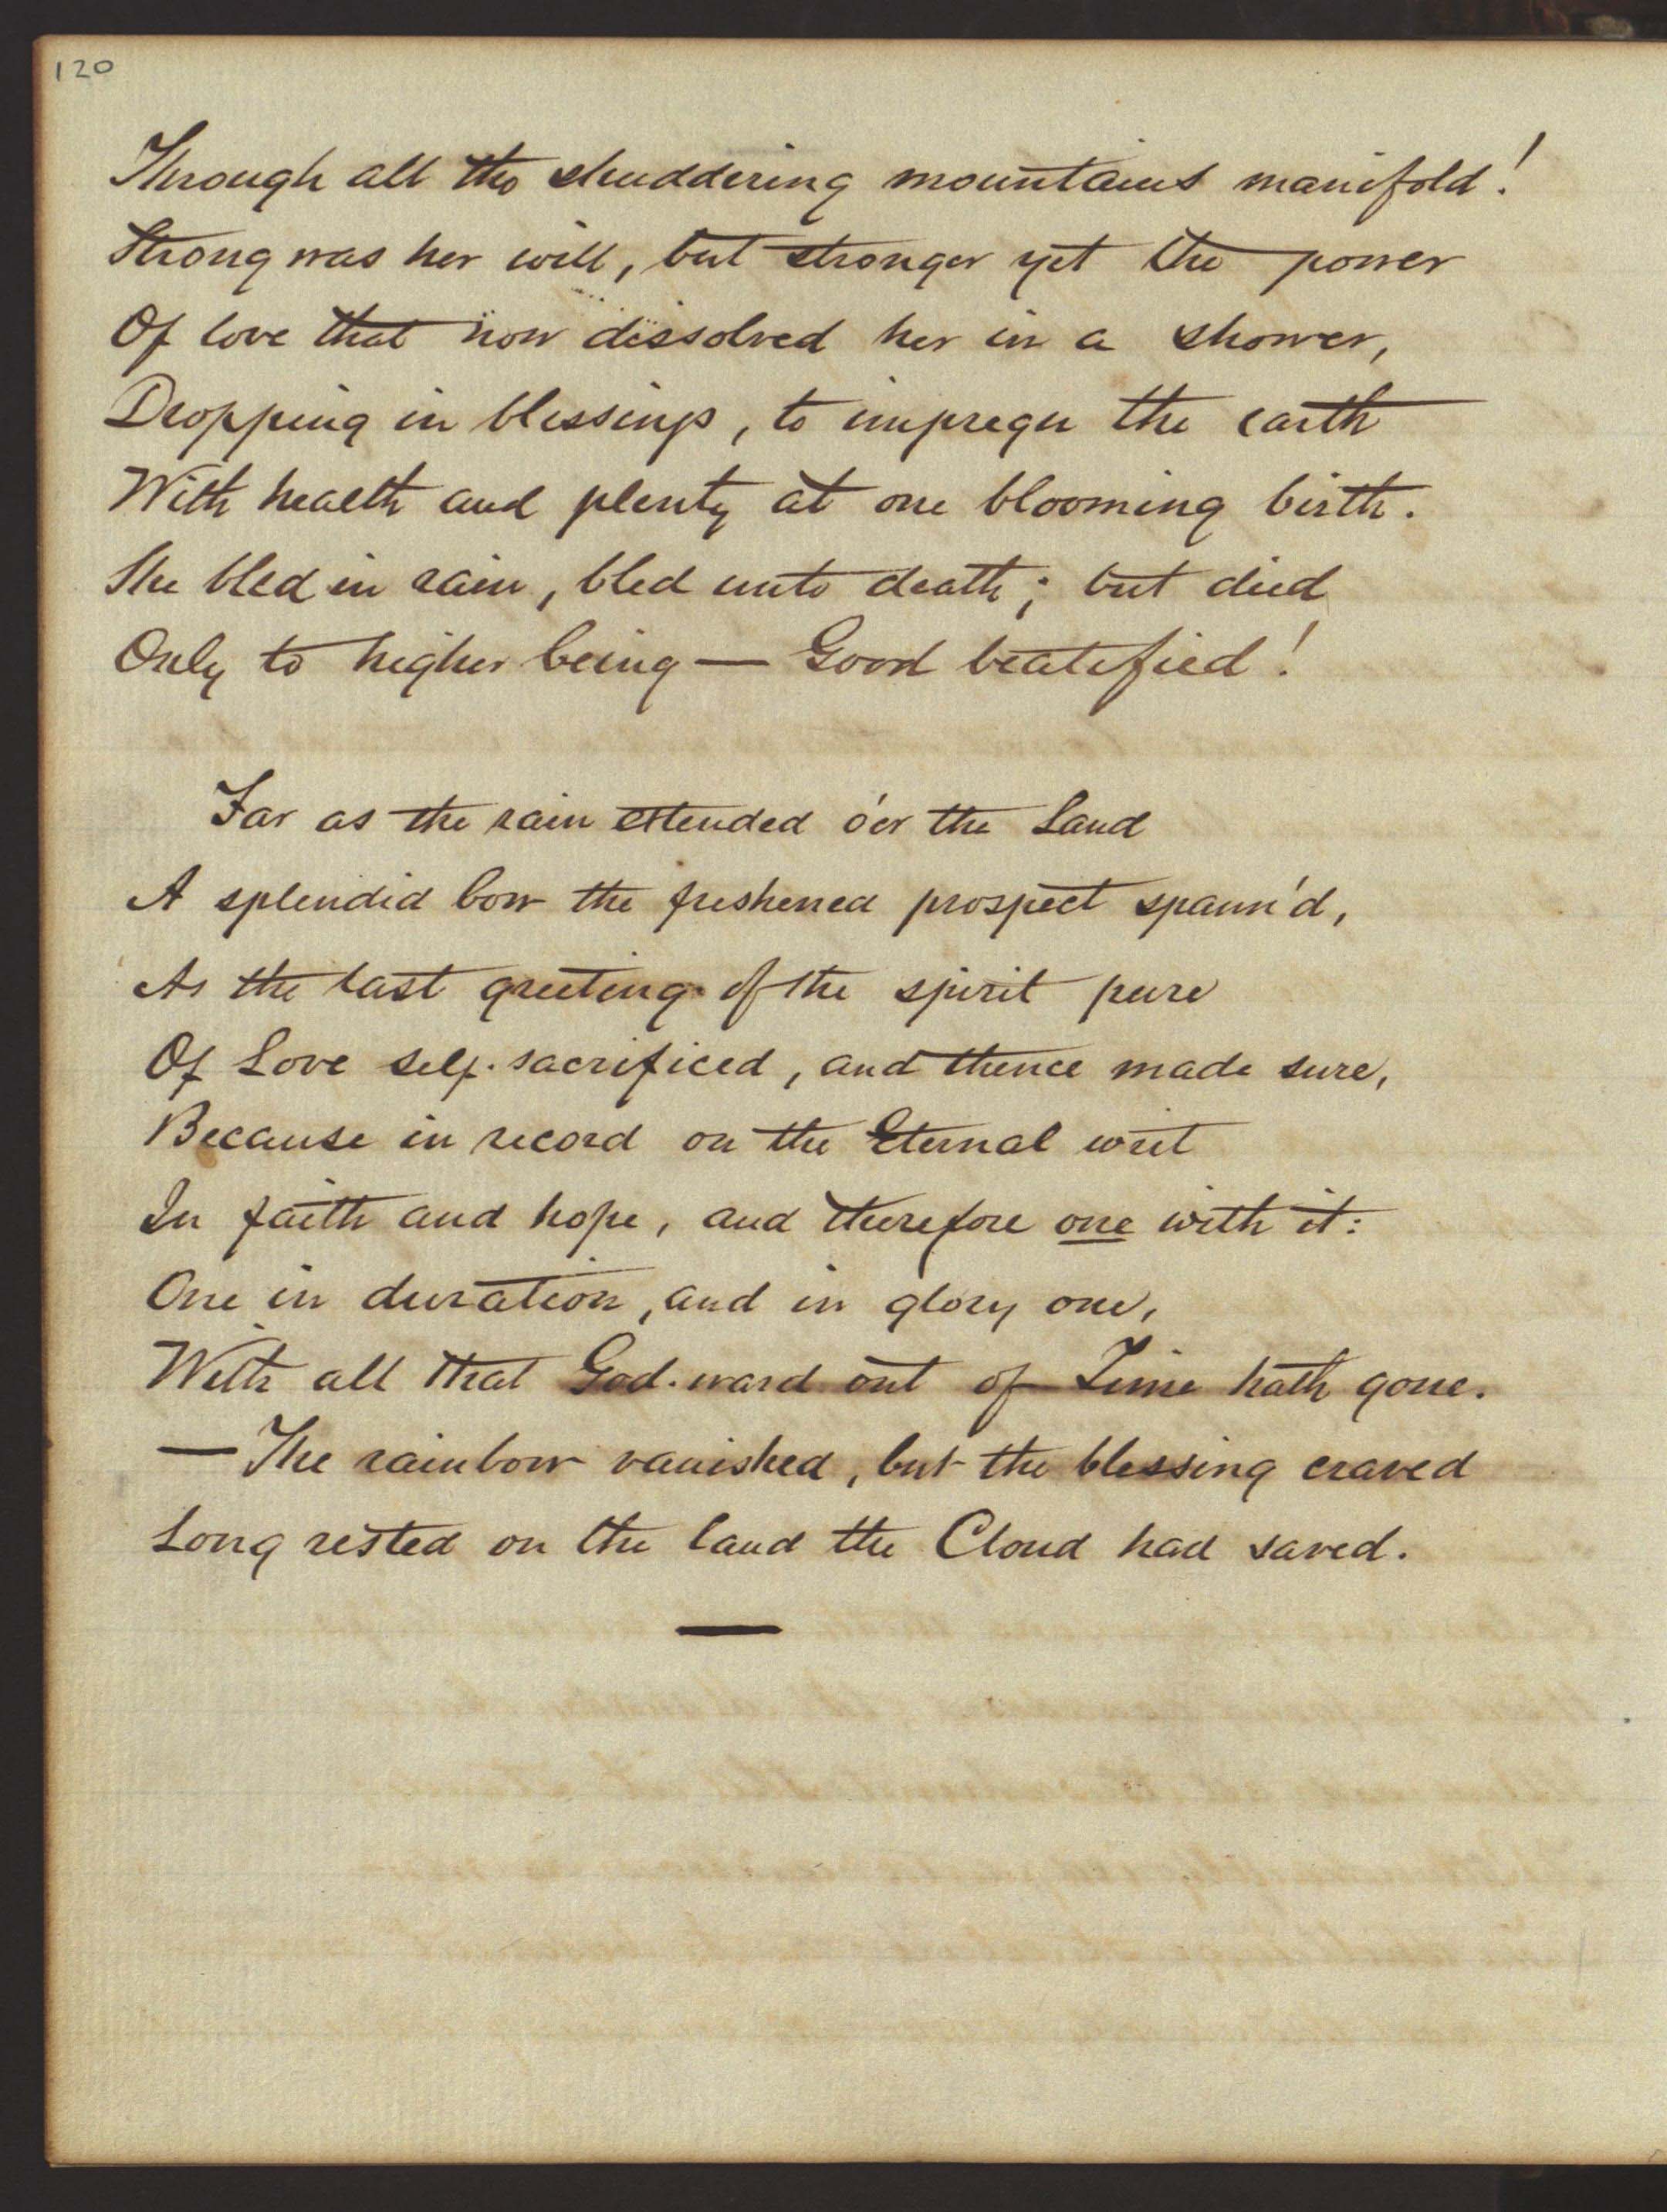 120
Through all the shuddering mountains manifold!
Strong was her will, but stronger yet the power
Of love that now dissolved her in a shower,
Dropping in blessings, to impregn the earth
With health and plenty at one blooming birth.
She bled in rain, bled unto death; but died
Only to higher being — Good beatified!
Far as the rain extended o'er the Land
A splendid bow the freshened prospect spann'd,
As the last greeting of the spirit pure
Of Love self-sacrificed, and thence made sure,
Because in record on the Eternal writ
In faith and hope, and therefore one with it:
One in duration, and in glory one,
With all that God-ward out of Time hath gone.
— The rainbow vanished, but the blessing craved
Long rested on the land the Cloud had saved.